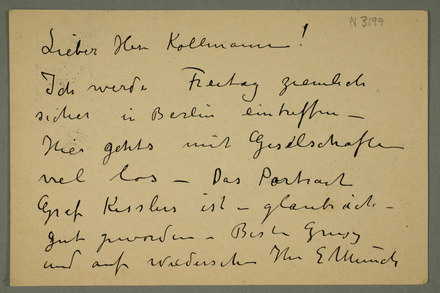 N 3199
Lieber Herr Kollmann!
Ich werde Freitag ziemlich
sicher in Berlin eintreffen –
Hier gehts mit Gesellschaften
viel los – Das Portrait
Graf Kesslers ist – glaub ich –
gut geworden – Beste Grüsse
und auf wiedersehn Ihr E Munch